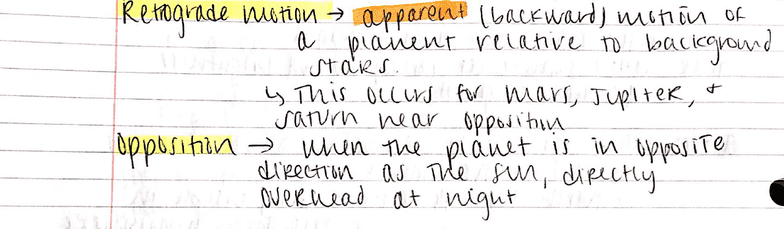 Retrograde motion → apparent (backward) motion of
a planent relative to background
stars.
↳ This occurs for mars, Jupiter, &
saturn near opposition
Opposition → when the planet is in opposite
direction as the sun, directly
overhead at night